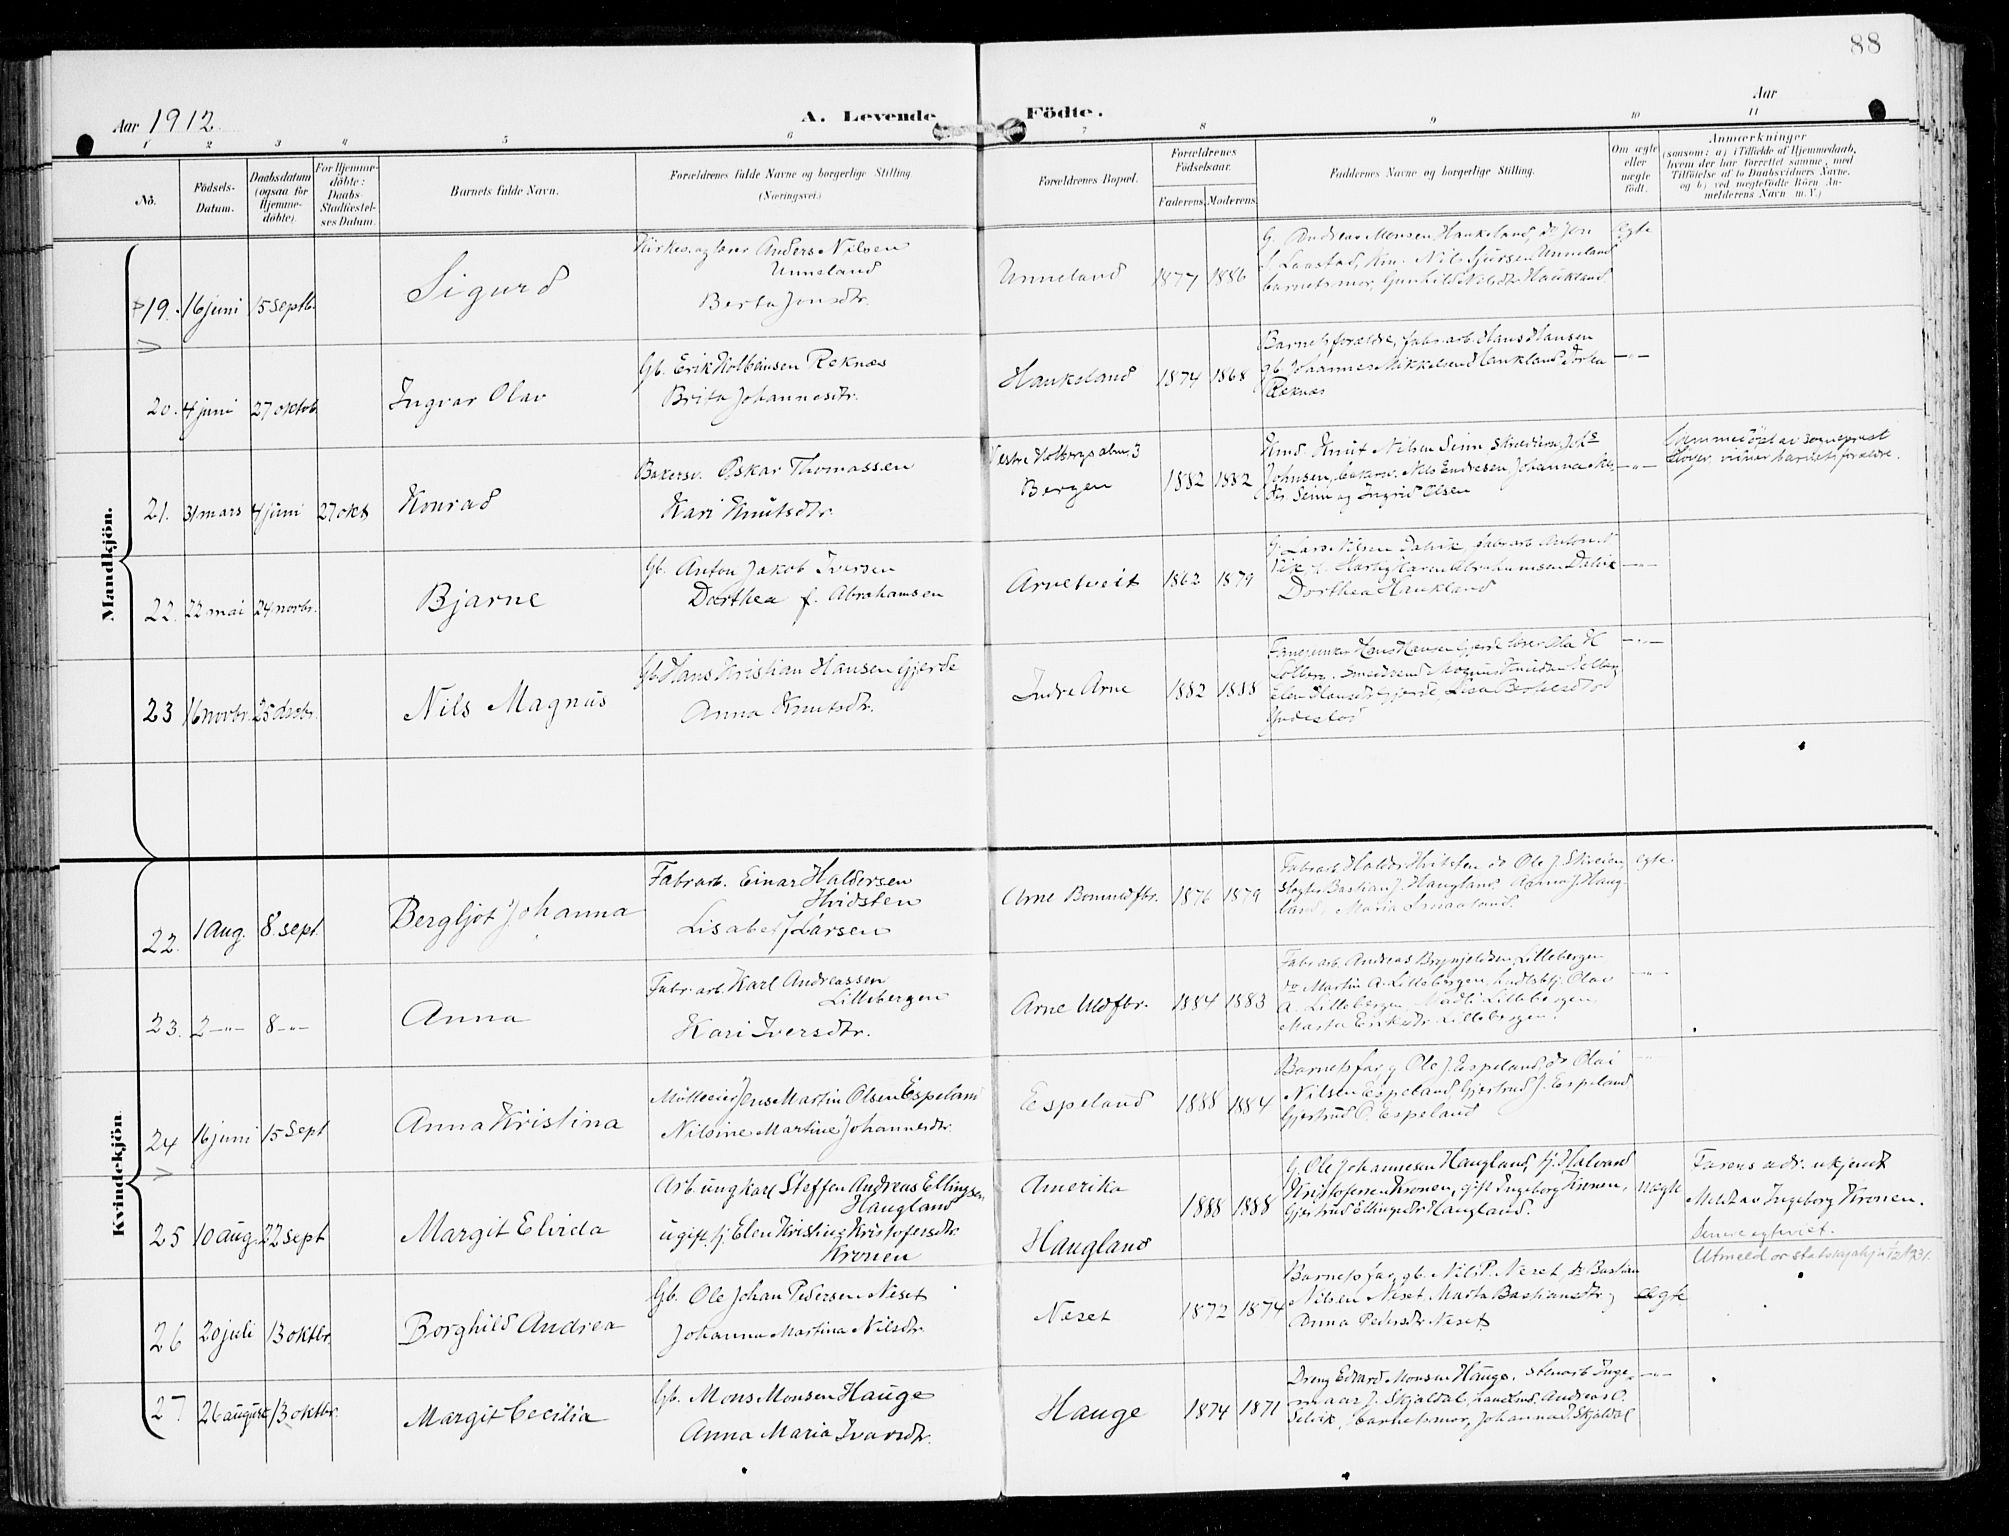 88
Aar 1912.
A. Levende Födte.
Aar
1 2 3 4 5 6 7 8 9 10 11
No.
Födsels-Datum.
Daabsdatum (ogsaa for Hjemme-döbte).
For Hjemme-döbte: Daabs Stadfæstel-ses Datum.
Barnets fulde Navn.
Forældrenes fulde Navne og borgerlige Stilling.
(Næringsvei.)
Forældrenes Bopæl.
Forældrenes Födselsaar.
Faderens. Moderens.
Faddernes Navne og borgerlige Stilling.
Om ægte eller uægte födt.
Anmærkninger
(saasom: a) i Tilfælde af Hjemmedaab,
hvem der har forrettet samme, med
Tilföielse af to Daabsvidners Navne,
og b) ved uægtefödte Börn An-
melderens Navn m. V.)
Mandkjön.
19. 16 juni 15 septb. Sigurd
Kirkesanger Anders Nilsen
Unneland
Berta Jensdtr.
Unneland 1877 1886
G. Andreas Monsen Haukeland, do Jon
Laastad, Nils Sjursen Unneland
barnets mor, Gunhild Nilsdtr Haukland
Ægte
20. 4 juni 27 oktob. Ingvar Olav
Gb. Erik Kolbeinsen Reknæs
Brita Johannesdtr.
Haukeland 1874 1868
Barnets forældre, fabr.arb. Hans Hansen
gb. Johannes Mikkelsen Haukland Dorte
Reknæs
—"—
21. 31 mars 4 juni 27 okt Konrad
Bakersv. Oskar Thomassen
Kari Knutsdtr.
Vestre Holbergsalm. 3
Bergen 1882 1882
Knut Nilsen Seim
Johnsen, bakersv. Nils Endresen, Johanna
Seim og Ingrid Olsen
—"—
Hjemmedøpt av sogneprest
vidner barnets forældre.
22. 22 mai 24 novbr. Bjarne
Gb. Anton Jakob Iversen
Dorthea f. Abrahamsen
Arnetveit 1862 1879
G. Lars Nilsen Dalvik, fabrarb Anton
Karen Abrahamsen Dalvik
Dorthea Haukland
—"—
23 16 novbr. 25 decbr. Nils Magnus
Gb. Hans Kristian Hansen Gjerde
Anna Knutsdtr.
Indre Arne 1882 1888
Hans Hansen Gjerde Ola K
Magnus Knutsen
Elen Hansdtr Gjerde, Lisa
—"—
Kvindekjön.
22. 1 aug. 8. sept. Bergljot Johanna
Fabr.arb. Einar Haldersen
Hvidsten
Lisabet J Larsen
Arne Bomuldfbr. 1876 1879
Fabrarb Halder Hvitsten do Ole J. Skreien
slagter Bastian J. Haugland, Anna J Haug-
land, Maria
ægte
23. 2 —"— 8 —"— Anna
Fabr.arb. Karl Andreassen
Lillebergen
Kari Iversdtr.
Arne Uldfbr. 1884 1883
Fabrarb. Andreas Brynjelsen Lillebergen
do Martin A. Lillebergen, Olav
A. Lillebergen, Madli Lillebergen,
Marta Eriksdtr. Lillebergen.
—"—
24 16 juni 15 Sept Anna Kristina
Mølleeier Jens Martin Olsen Espeland
Nilsine Martine Johannesdtr.
Espeland 1888 1884
Barnets far, g Ole J. Espeland, do Olai
Nilsen Espeland, Gjertrud J. Espeland
Gjertrud O. Espeland
—"—
25 10 aug. 22 sept Margit Elvida
Arb. ungkarl Steffen Andreas Ellingsen
Haugland
ugift pj. Elen Kristine Kristofersdtr.
Kronen
Amerika
Haugland
1888 1888
G. Ole Johannesen Haugland, Halvard
Kristofersen Kronen, gift Ingeborg Kronen,
Gjertrud Ellingsdtr Haugland.
uægte
Farens adr. ukjendt
Meldt av Ingeborg Kronen.
Senere egteviet.
Utmeldt or statskyrkja 12/1931.
26 20 juli 13 oktbr. Borghild Andrea
Gb. Ole Johan Pedersen Neset
Johanna Martina Nilsdtr.
Neset 1872 1874
Barnets far, gb. Nils P. Neset, do Bastian
Nilsen Neset Marta Bastiansdtr,
Anna Pedersdtr Neset
Ægte
27 26 august 13 oktbr. Margit Cecilia
Gb. Mons Monsen Hauge
Anna Maria Ivarsdtr.
Hauge 1874 1871
Dreng Edvard Monsen Hauge, stenarb Inge-
maar J. Skjoldal, Andreas O.
Selvik, barnets mor, Johanna I. Skjoldal
—"—